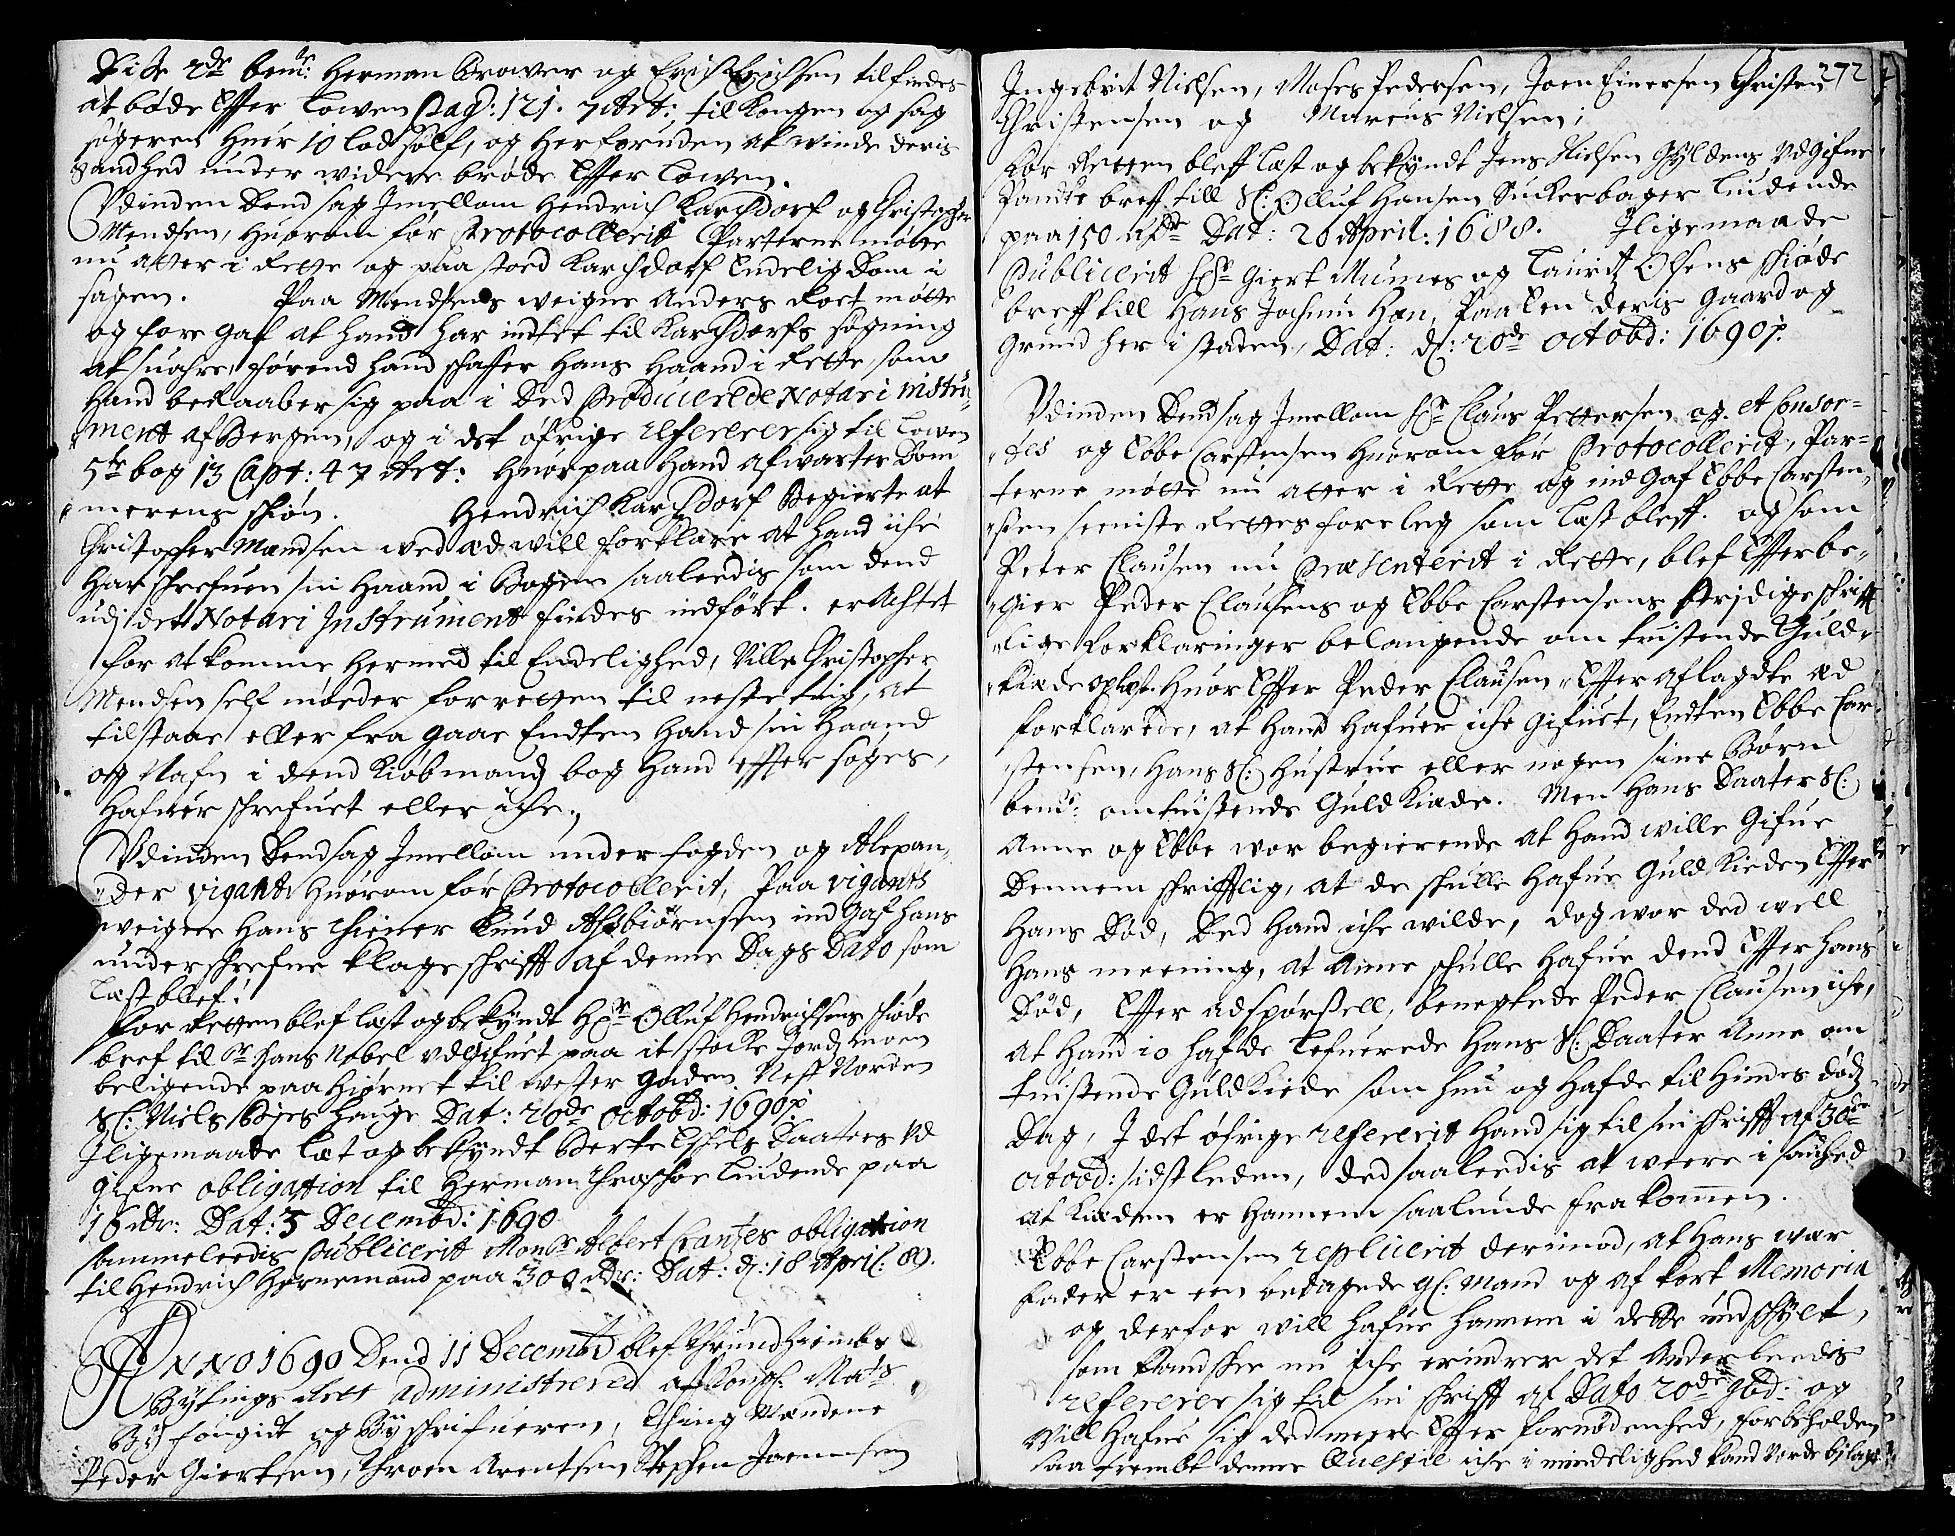 Disse 2de bem:te Herman Brower og Erich Erichsen tilfindes
at bøde Effter Lowen Pag: 121. 7 Art: til Kongen og sag
søgeren Huer 10 lod sølf, og Herforuden at winde deris
Sandhed under widere brøde Effter Lowen.
Udinden Dend sag Imellom Hendrich Karchdorf og Christopher
Mendsen, Huorom før Protocollerit Parterne møtte
nu atter i Rette og paastoed Karchdorf Endelig Dom i
sagen. Paa Mendsens weigne Anders Rost møtte
og fore gaf at hand har indtet til Karchdorfs søgning
at suahre, førend hand schaffer Hans Haand i Rette, som
Hand beraaber sig paa i Ded Producerede Notari instru-
ment af Bergen, og i det øfrige refererer sig til Lowen
5te bog 13 Capt: 47 Art: Huorpaa Hand afwarter Dom-
merens schiøn. Hendrich Karchdorf Begierte at
Christopher Mendsen wed æd will forklare at hand iche
Har schrefuen sin Haand i Bogen saaleedis som dend
udj det Notari Instrument findes indført. er Achtet
for at komme Hermed til Endelighed, Ville Christopher
Mendsen self møeder for retten til neste ting, at
tilstaae eller fra gaae Endten Hand sin Haand
og Nafn i dend Kiøbmand bog Hand effter søges,
Hafuer schrefuet eller iche.
Udinden Dend sag Imellom underfogden og Alexan-
der Vigant, Huorom før Protocollerit, Paa Vigants
weigne Hans thiener Knud Asbiørnsen ind Gaf hans
underschrefne klageschrifft af denne Dags Dato som
læst blef.
For Retten blef læst og bekyndt Hr Olluf Hendrichsens schiøde
bref til Sr Hans Nobel udgifuet paa it støcke Jord, moen
beligende paa Hiørnet til wester gaden Neff Norden
Sl: Niels Bøjes Hauge Dat: 20de Octobd: 1690.
Iligemaade læt og bekyndt Berte Eskels Daaters Ud
gifne obligation til Herman Throschoe Liudende paa
16 Rdr: Dat: 5 Decembd: 1690
Sammeleedis Publicerit Monsr Albert Crantzes obligation
til Hendrich Hornemand paa 300 Rdr: Dat: d: 18 April: 89.
ANNO 1690 Dend 11 Decembd blef Thrundhiembs
Bytings Rett administrered af Kongl: Maits
Byfougit og Byschrifueren, Thing Mændene
Peder Giertsen, Throen Arentsen Stephen Joensen
272
Ingebrit Nielsen, Moses Pedersen, Joen Einersen Christen
Christensen og Marcus Nielsen;
For Retten bleff læst og bekyndt Jens Nielsen Gyldens Udgifne
Pandte breff till Sl: Olluf Hansen Suckerbager Liudende
paa 150 Rdr Dat: 20 April: 1688. Iligemaade
Publicerit Sr Giert Mumes og Lauritz Olsens schiøde
breff till Hans Jochum Han, Paa Een deris Gaard og
Grund her i staden, Dat: d: 20de Octobd: 1690.
Udinden Dend sag Imellom Sr Claus Pettersen og et Consor-
tes og Ebbe Carstensen Huorom før Protocollerit, Par-
terne møtte nu atter i Rette og ind Gaf Ebbe Carsten-
sen seeniste Rettes foreleg som læst bleff. og som
Peter Clausen nu Præsenterit i Rette, blef Effter be-
gier Peder Clausens og Ebbe Carstensens Ferdige schrifft
lige forklaringer belangende omtuistende Guld-
kiæde oplæst. Huor Effter Peder Clausen Effter aflagdte æd
forklarede, at Hand Hafuer iche Gifuet, Endten Ebbe Car-
stensen, Hans Sl: Hustrue eller nogen sine Børn
bem:te omtuistende Guld Kiæde. Men Hans Daater Sl:
Anne og Ebbe wor begierende at Hand wille Gifue
Dennem schrifftlig, at de schulle Hafue Guld Kieden Effter
Hans Død, Ded Hand iche wilde, dog wor ded well
Hans meening, at Anne schulle Hafue dend Effter Hans
Død, Effter adspørsell, benegtede Peder Clausen iche,
at Hand io hafde Lefuerede Hans Sl: Daater Anne om
tuistende Guld Kiede som hun og Hafde til Hindes Døds
Dag, I det øfrige refererit Hand sig til sin schrifft af 30de
Octobd: sidstleden, ded saaleedis at weere i sandhed
at Kieden er Hannem saalunde frakommen.
Ebbe Carstensen replicerit derimod, at Hans wær
fader er een bedagede gl: Mand og af kort Memoria
og derfor will hafue hannem i dette undschylt,
som kandschee nu iche erindrer det Anderleedis
refererer sig til sin schrifft af Dato 20de 9bd: og
Will Hafue sig ded meere Effter fornødenhed, forbeholden
saa fremt denne Questie iche i mindelighed kand vorde bilagt